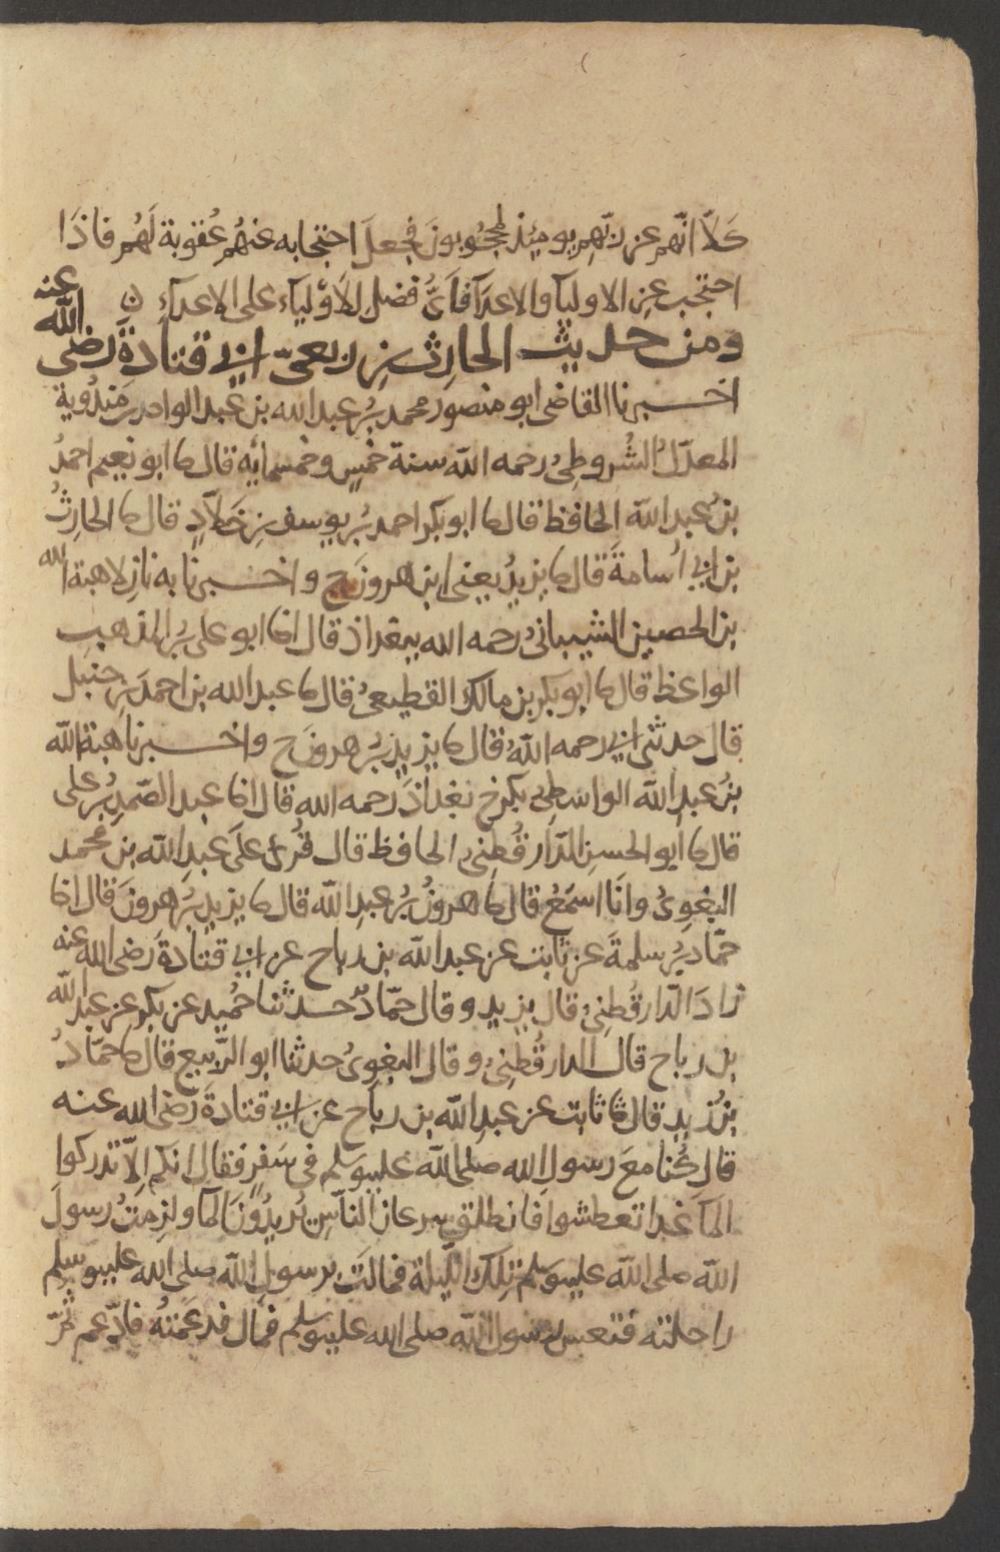 كلا انهم عن ربهم يومئذ لمحجوبون فجعل احتجابه عنهم عقوبة لهم فاذا
احتجب عن الاوليآء والاعدآء فاىّ فضل للأولياء على الاعدآء ن
ومن حديث الحارث بن ربعىّ ابى قتادة رضى الله عنه
اخبرنا القاضى ابو منصور محمد بن عبد الله بن عبد الواحد بن مندوية
المعدّل الشروطىُ رحمه الله سنة خمسٍ وخمسمائه قال نا ابو نعيم احمدُ
بنُ عبد الله الحافظ قال نا ابو بكر احمد بنُ يوسف بنِ خلّادٍ قال نا الحارثُ
بن ابى أسامةَ قال نا يزيدُ يعنى ابن هرونَ ح واخبرنا به نازلا هبة الله
بن الحصين الشيبانىُ رحمه الله ببغداذ قال انا ابو على بنُ المذهبِ
الواعظ قال نا ابو بكر بن مالك القطيعىُ قال نا عبد الله بن احمدَ بنِ حنبل
قال حدثنى ابى رحمه اللهُ قال نا يزيد بنُ هرونَ ح واخبرنا هبة الله
بنُ عبد الله الواسطىُ بكرخ بغداذَ رحمه الله قال انا عبد الصّمد بنُ على
قال نا ابو الحسن الدّارقُطنىُ الحافظ قال قُرئ علَى عبدِ الله بن محمد
البغوىُ وانَا اسمعُ قال نا هرونُ بنُ عبدِ الله قال نا يزيد بنُ هرونَ قال انا
حمّاد بنُ سلمةَ عن ثابت عن عبد الله بن رباح عن ابى قتادةَ رضى الله عنه
زادَ الدّارقُطنىُ قال يزيد وقال حمّادٌ حدثنا حُميد عن بكر عن عبد الله
بن رباح قال الدارقُطنىُ وقال البغوىُ حدثنا ابو الرّبيع قال نا حمّادُ
بنُ زيد قال نا ثابت عن عبدِ الله بن رباح عن ابى قتادةَ رضى الله عنه
قال كُنا معَ رسولِ الله صلى الله عليه وسلم فى سَفرٍ فقال انكم اِلاّ تدركوا
المآ غدا تعطشوا فانطلق سرعان النّاسِ يُريدُونَ المآ ولزِمتُ رسولَ
الله صلى الله عليه وسلم تِلك الليلة فمالَت برسول الله صلى الله عليه وسلم
راحلته فنعس رسول الله صلى الله عليه وسلم فمال فدعمتهُ فادّعم ثمّ